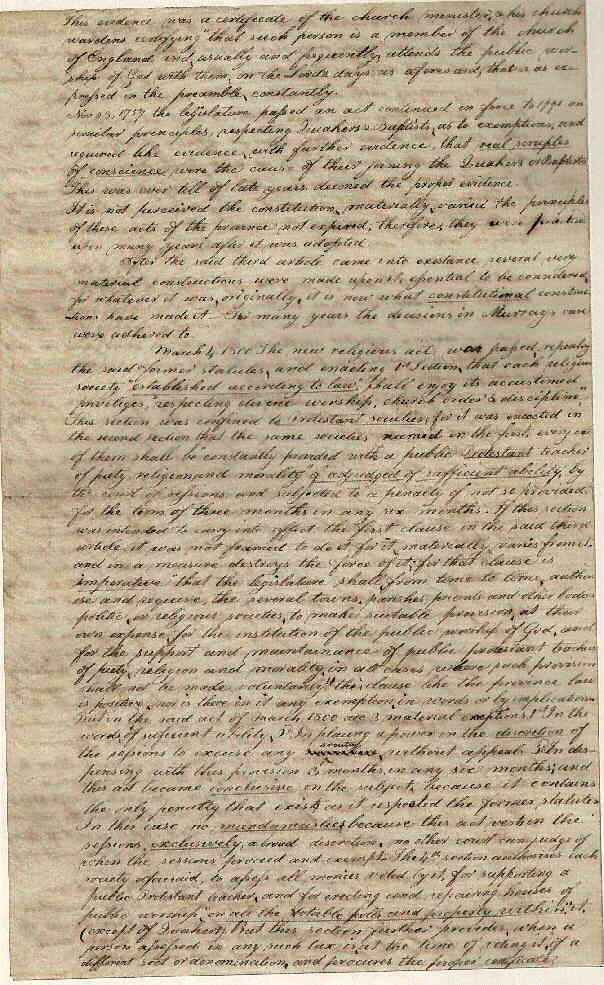 This evidence was a certificate of the church minister, & his church
wardens certifying "that such person is a member of the church
of England and usually and frequently attends the public wor-
ship of God with them, on the Lords days as aforesaid, that is as ex-
pressed in the preamble, constantly.
Nov 23, 1757 the legislature passed an act continued in force to 1791 on
similar principles, respecting Quakers & Baptists, as to exemptions, and
required like evidence, with further evidence, that real scruples
of conscience were the cause of their joining the Quakers or Baptists
This was ever till of late years deemed the proper evidence.
It is not perceived the constitution, materially, varied the principles
of these acts of the province not expired, therefore, they were practised
upon many years after it was adopted
After the said third article came into existance several very
material constructions were made upon it, essential to be considered,
for whatever it was, originally, it is now what constitutional construc
tions have made it - For many years the decisions in Murrays case
were adhered to
March 4 1800 The new religious act was passed, repealing
the said former statutes, and enacting 1st Section, that each religious
society "established according to law", shall enjoy its accustomed
priviliges, "respecting divine worship, church order & discipline,"
This section was confined to protestant societies, for it was enacted in
the second section that the same societies named in the first, every one
of them shall be constantly provided with a public Protestant teacher
of piety religion and morality & adjudged of sufficient ability, by
the court of sessions and subjected to a penalty if not so provided,
for the term of three months in any six months. If this section
was intended to carry into effect the first clause in the said third
article it was not framed to do it, for it, materially, varies from it,
and in a measure destroys the force of it; for that clause is
imperative "that the legislature shall, from time to time, author
ise and require, the several towns, parishes precincts and other bodies
politic, or religious societies, to make suitable provision, at their
own expense, for the institution of the public worship of God, and
for the support and maintainance of public protestant teachers
of piety, religion and morality, in all cases where such provision
shall not be made voluntarily" this clause like the province law
is positive, nor is there in it any exemption, in words or by implication
But in the said act of March 1800 are 3 material exceptions 1st In the
words of sufficient ability, 2d In placing a power in the discretion of
the sessions to excuse any society without appeal; 3d In dis-
pensing with this provision 3 months, in any six months; and
this act became conclusive on the subject, because it contains
the only penalty that exists as it repealed the former statutes
In this case no mandamus lies because this act vests in the
sessions, exclusively, a broad discretion, no other court can judge of
when the sessions proceed and exempt. The 4th section authorises each
society aforesaid, to assess all monies voted by it, for supporting a
public Protestant teacher, and for erecting and repairing houses of
public worship, "on all the rateable polls and property within it,
(except of Quakers)", But this section further provides, when a
person assessed in any such tax is at the time of voting it, of a
different sect or denomination, and procures the proper certificate